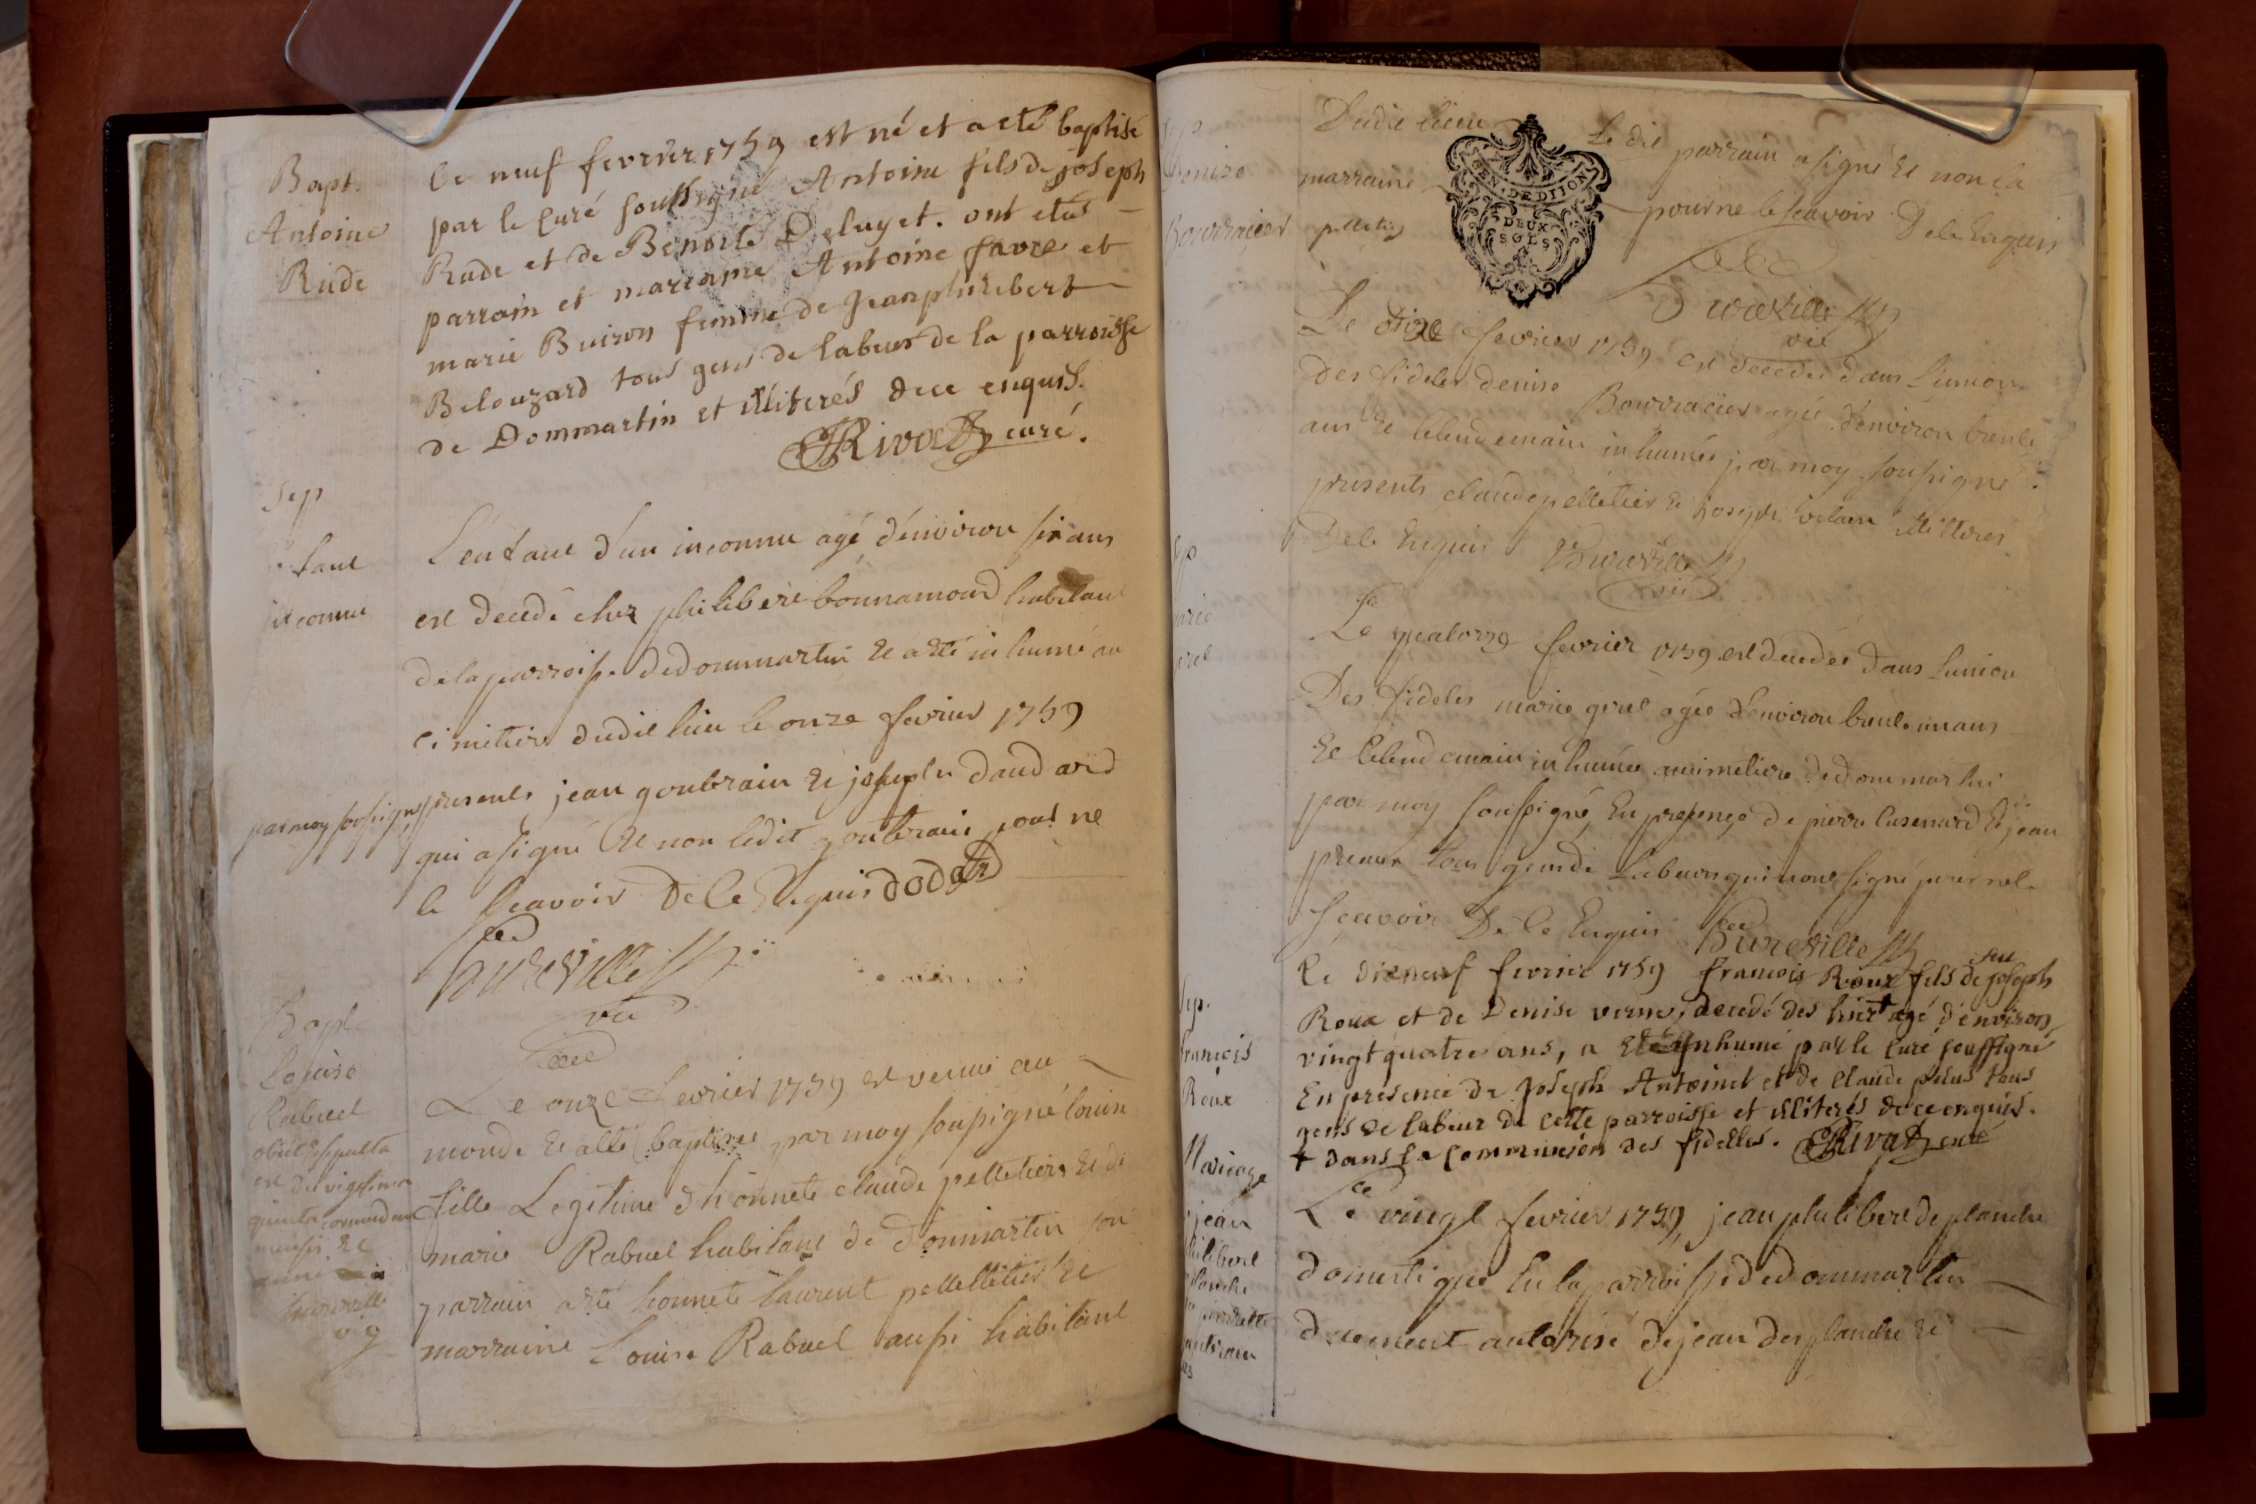 Bapt.
Antoine
Rude
Le neuf fevrier 1759 est né et a eté baptisé
par le curé soussigné Antoine fils de joseph
Rude et de Benoite Deluget. ont etés
parrain et marraine Antoine favre et
marie Buiron femme de Jeanphilibert
Belouzard tous gens de labeur de la parroisse
de Dommartin et illiterés dece enquis.
Rivat curé.
Sep
inconnu
L'enfant d'un inconnu agé d'environ six ans
est decedé chez philibert bonnamour habitant
de la parroisse de dommartin et a eté inhumé au
cimetiere dudit lieu le onze fevrier 1759
par moy soussigné presents jean goubrain et joseph daudard
qui a signé et non ledit goubrain pour ne
le scavoir de ce Enquis
Bureville
vic
Bapt
Louise
Rabuel
obiit et sepulta
est die vigesima
quinta
mensis et
anni
Bureville
vic
Le onze fevrier 1759 est venue au
monde et a eté baptisée par moy soussigné louise
fille Legitime d'honnete claude pelletier et de
marie Rabuel habitant de dommartin son
parrain a eté honnete laurent pelletier et
marraine Louise Rabuel aussi habitant
Sep
Denise
Bourracier
Dudit lieu Le dit parrain a signé et non la
marraine pour ne le scavoir De ce Enquis
pelletier
GEN. DE DIJON
DEUX
SOLS
Bureville
vic
Le onze fevrier 1759 est decedée dans l'union
Des fideles denise Bourracier agée d'environ trente
ans et le lendemain inhumée par moy soussigné
presents claude pelletier et joseph velain illiterés
De ce Enquis Bureville
vic
Sep
marie
grel
Le quatorze fevrier 1759 est decedée dans l'union
Des fideles marie grel agée d'environ trente un ans
et le lendemain inhumée au cimetiere de dommartin
par moy soussigné En presence de pierre lasenard et jean
tous gens de Labeur qui n'ont signé pour ne le
scavoir De Ce Enquis Bureville
Sep.
francois
Roux
Le dixneuf fevrier 1759 francois Roux fils de feu joseph
Roux et de Denise verne, decedé des hier + agé d'environ
vingt quatre ans, a eté inhumé par le curé soussigné
En presence de Joseph Antoinet et de Claude pilus tous
gens de labeur de cette parroisse et illiterés dece enquis.
+ dans la Communion des fidelles. Rivat curé
Mariage
jean
philibert
planche
Le vingt fevrier 1759, jean philibert de planche
domestique En la parroisse de dommartin
duement autorisé de jean des planche et